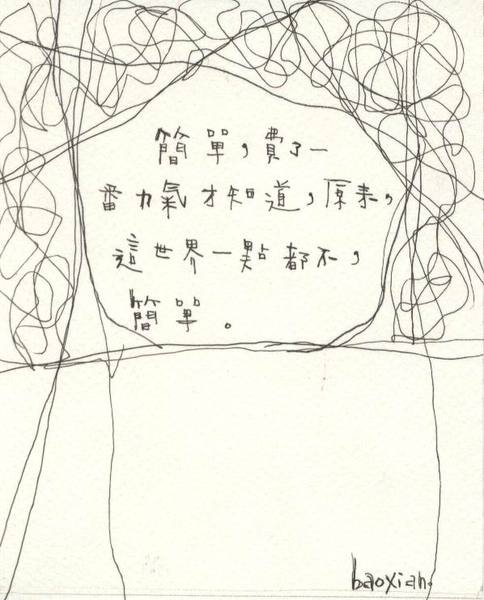 簡單，費了一
番力氣才知道，原來，
這世界一點都不，
簡單。
baoxian.